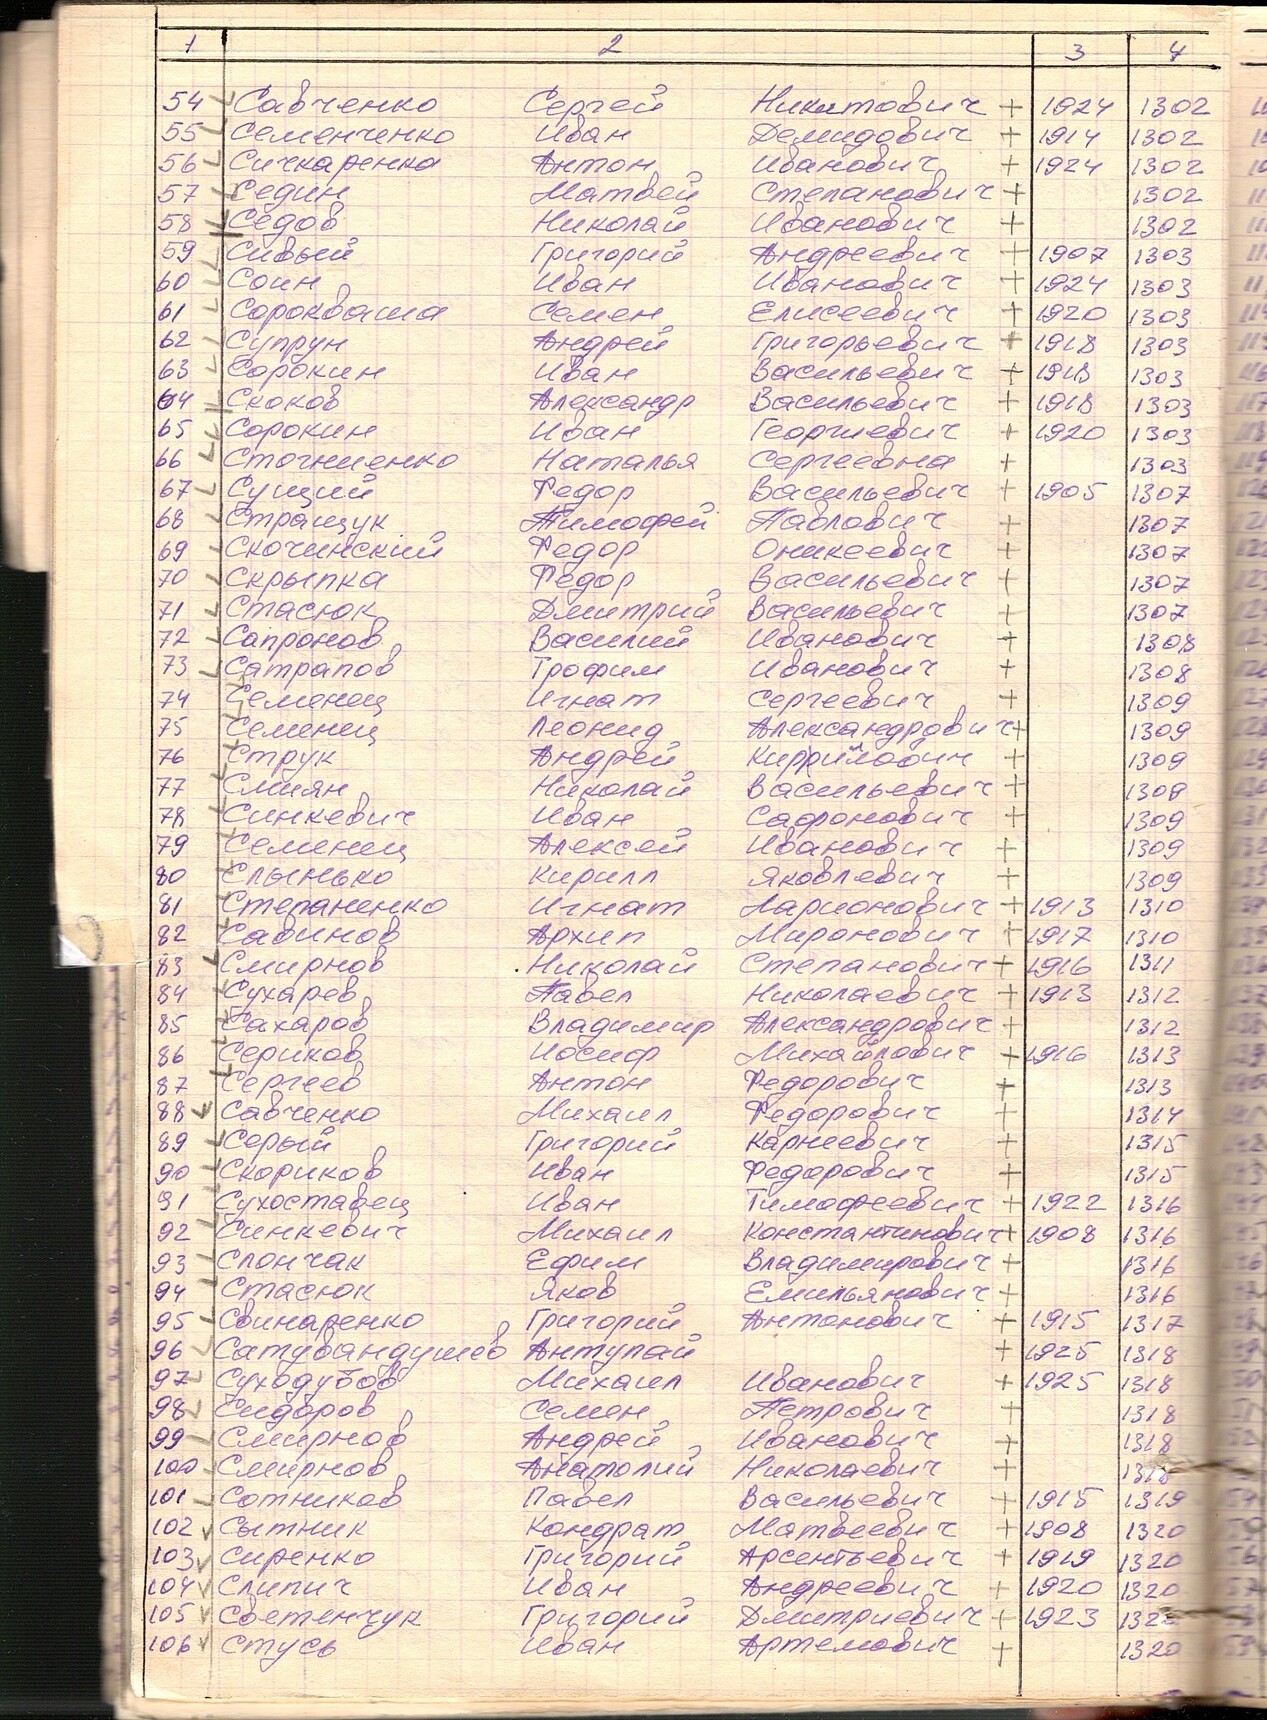 1 2 3 4
54 Савченко Сергей Никитович + 1924 1302
55 Семенченко Иван Демидович + 1914 1302
56 Сичкаренко Антон Иванович + 1924 1302
57 Седин Матвей Степанович + 1302
58 Седов Николай Иванович + 1302
59 Сивый Григорий Андреевич + 1907 1303
60 Соин Иван Иванович + 1924 1303
61 Сорокваша Семен Елисеевич + 1920 1303
62 Супрун Андрей Григорьевич + 1918 1303
63 Сорокин Иван Васильевич + 1918 1303
64 Скоков Александр Васильевич + 1918 1303
65 Сорокин Иван Георгиевич + 1920 1303
66 Стогниенко Наталья Сергеевна + 1303
67 Сущий Федор Васильевич + 1905 1307
68 Стращук Тимофей Павлович + 1307
69 Скочинский Федор Оникеевич + 1307
70 Скрыпка Федор Васильевич + 1307
71 Стасюк Дмитрий Васильевич + 1307
72 Сапронов Василий Иванович + 1308
73 Сатрапов Трофим Иванович + 1308
74 Семенец Игнат Сергеевич + 1309
75 Семенец Леонид Александрович + 1309
76 Струк Андрей Кириллович + 1309
77 Смиян Николай Васильевич + 1309
78 Синкевич Иван Сафронович + 1309
79 Семенец Алексей Иванович + 1309
80 Слынько Кирилл Яковлевич + 1309
81 Степаненко Игнат Ларионович + 1913 1310
82 Савинов Архип Миронович + 1917 1310
83 Смирнов Николай Степанович + 1916 1311
84 Сухарев Павел Николаевич + 1913 1312
85 Сахаров Владимир Александрович + 1312
86 Сериков Иосиф Михайлович + 1916 1313
87 Сергеев Антон Федорович + 1313
88 Савченко Михаил Федорович + 1314
89 Серый Григорий Карнеевич + 1315
90 Скориков Иван Федорович + 1315
91 Сухоставец Иван Тимофеевич + 1922 1316
92 Синкевич Михаил Константинович + 1908 1316
93 Слончак Ефим Владимирович + 1316
94 Стасюк Яков Емильянович + 1316
95 Свинаренко Григорий Антонович + 1915 1317
96 Сатувандушев Антупай + 1925 1318
97 Суходубов Михаил Иванович + 1925 1318
98 Сидоров Семен Петрович + 1318
99 Смирнов Андрей Иванович + 1318
100 Смирнов Анатолий Николаевич + 1318
101 Сотников Павел Васильевич + 1915 1319
102 Сытник Кондрат Матвеевич + 1908 1320
103 Сиренко Григорий Арсентьевич + 1919 1320
104 Слипич Иван Андреевич + 1920 1320
105 Светенчук Григорий Дмитриевич + 1923 1320
106 Стусь Иван Артемович + 1320